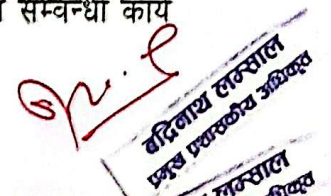 सम्वन्धी कार्य
बद्रिनाथ लम्साल
प्रमुख प्रशासकीय अधिकृत
लम्साल